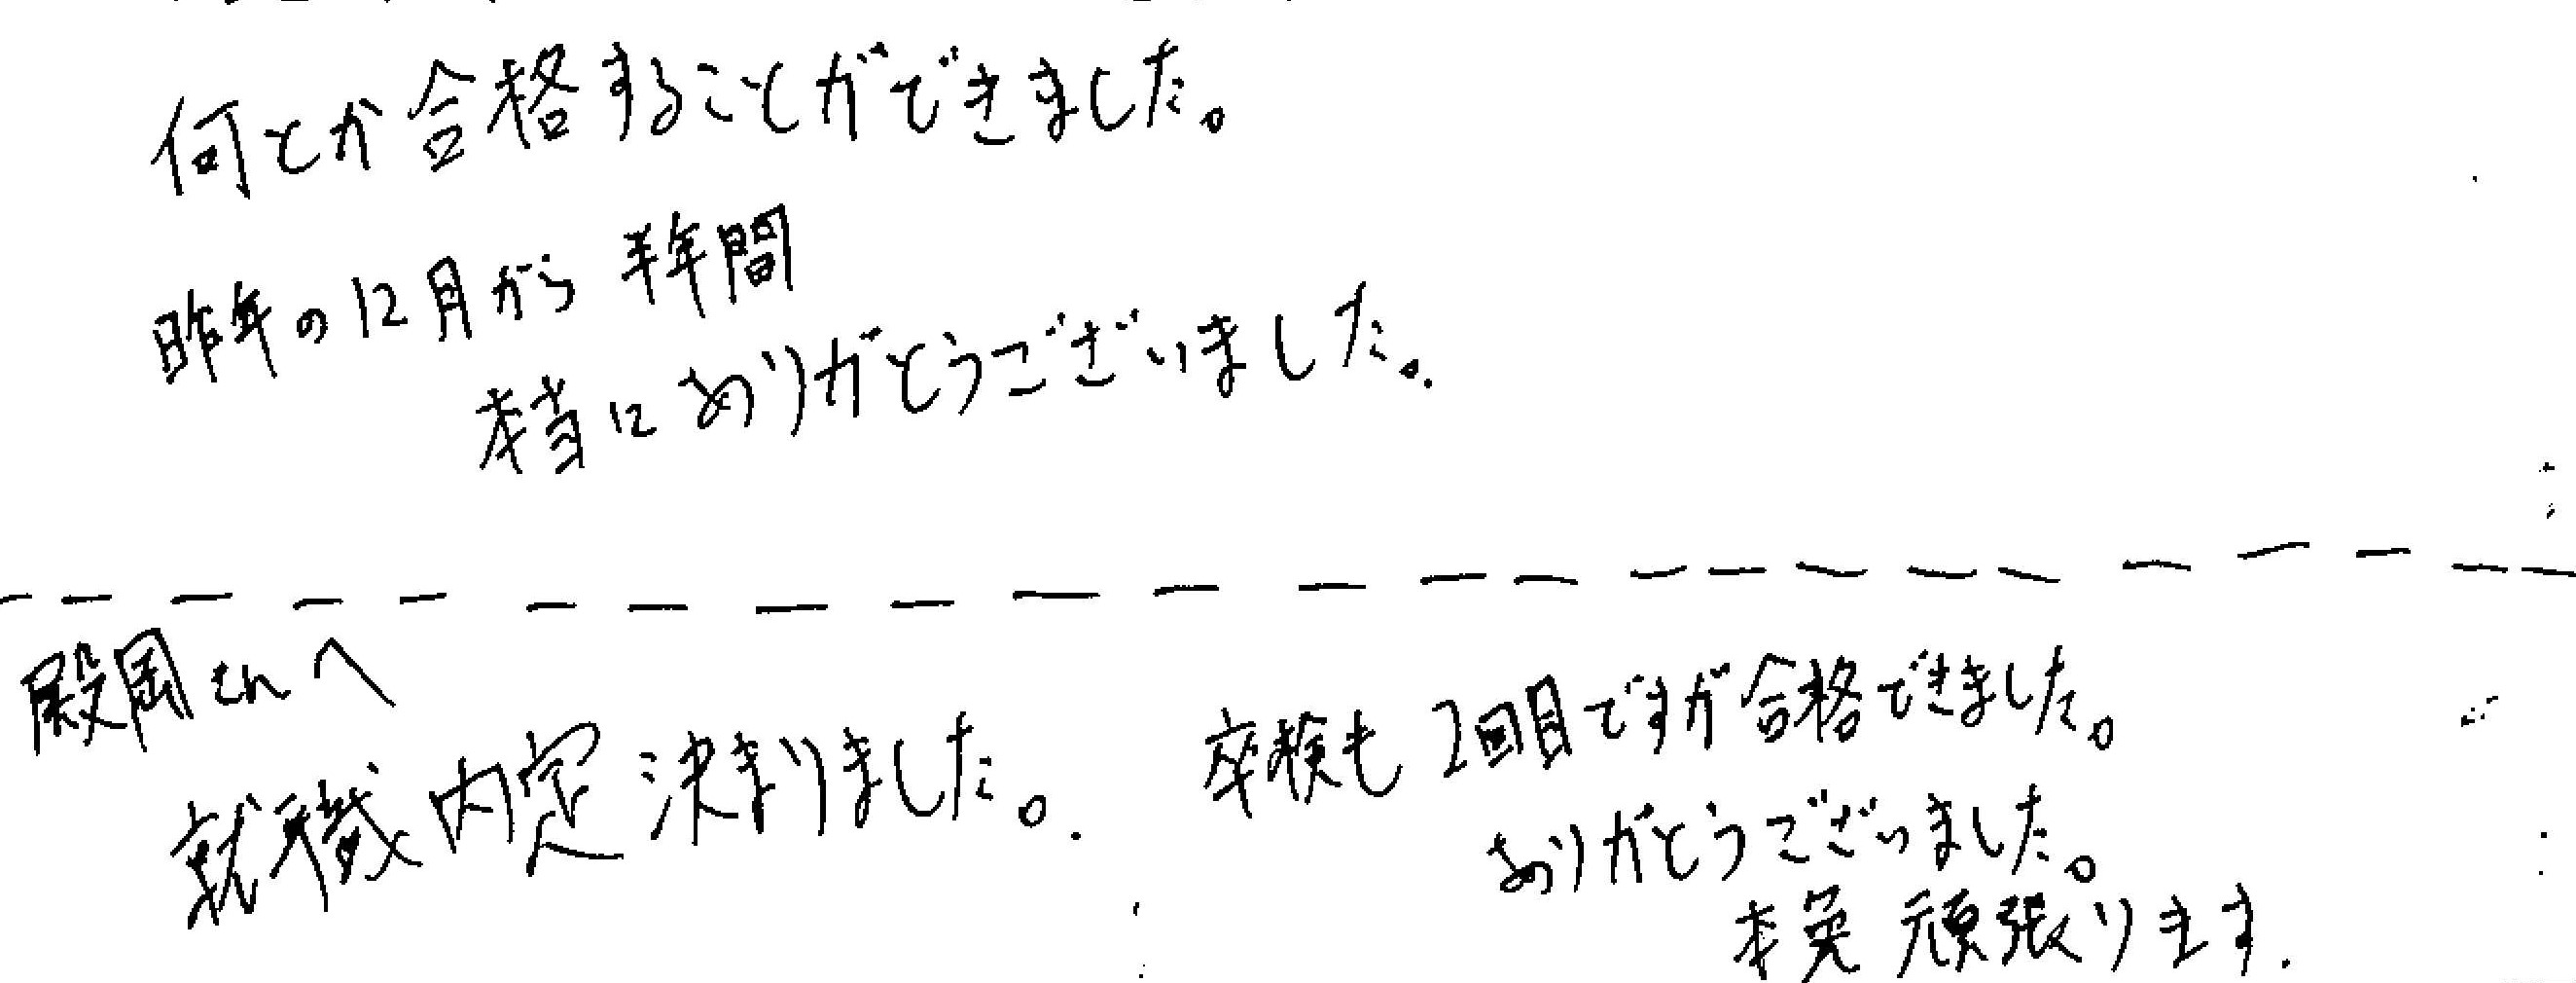 何とか合格することができました。
昨年の12月から半年間
本当にありがとうございました。
殿岡さんへ
就職内定決まりました。
卒検も2回目ですが合格できました。
ありがとうございました。
本免頑張ります.